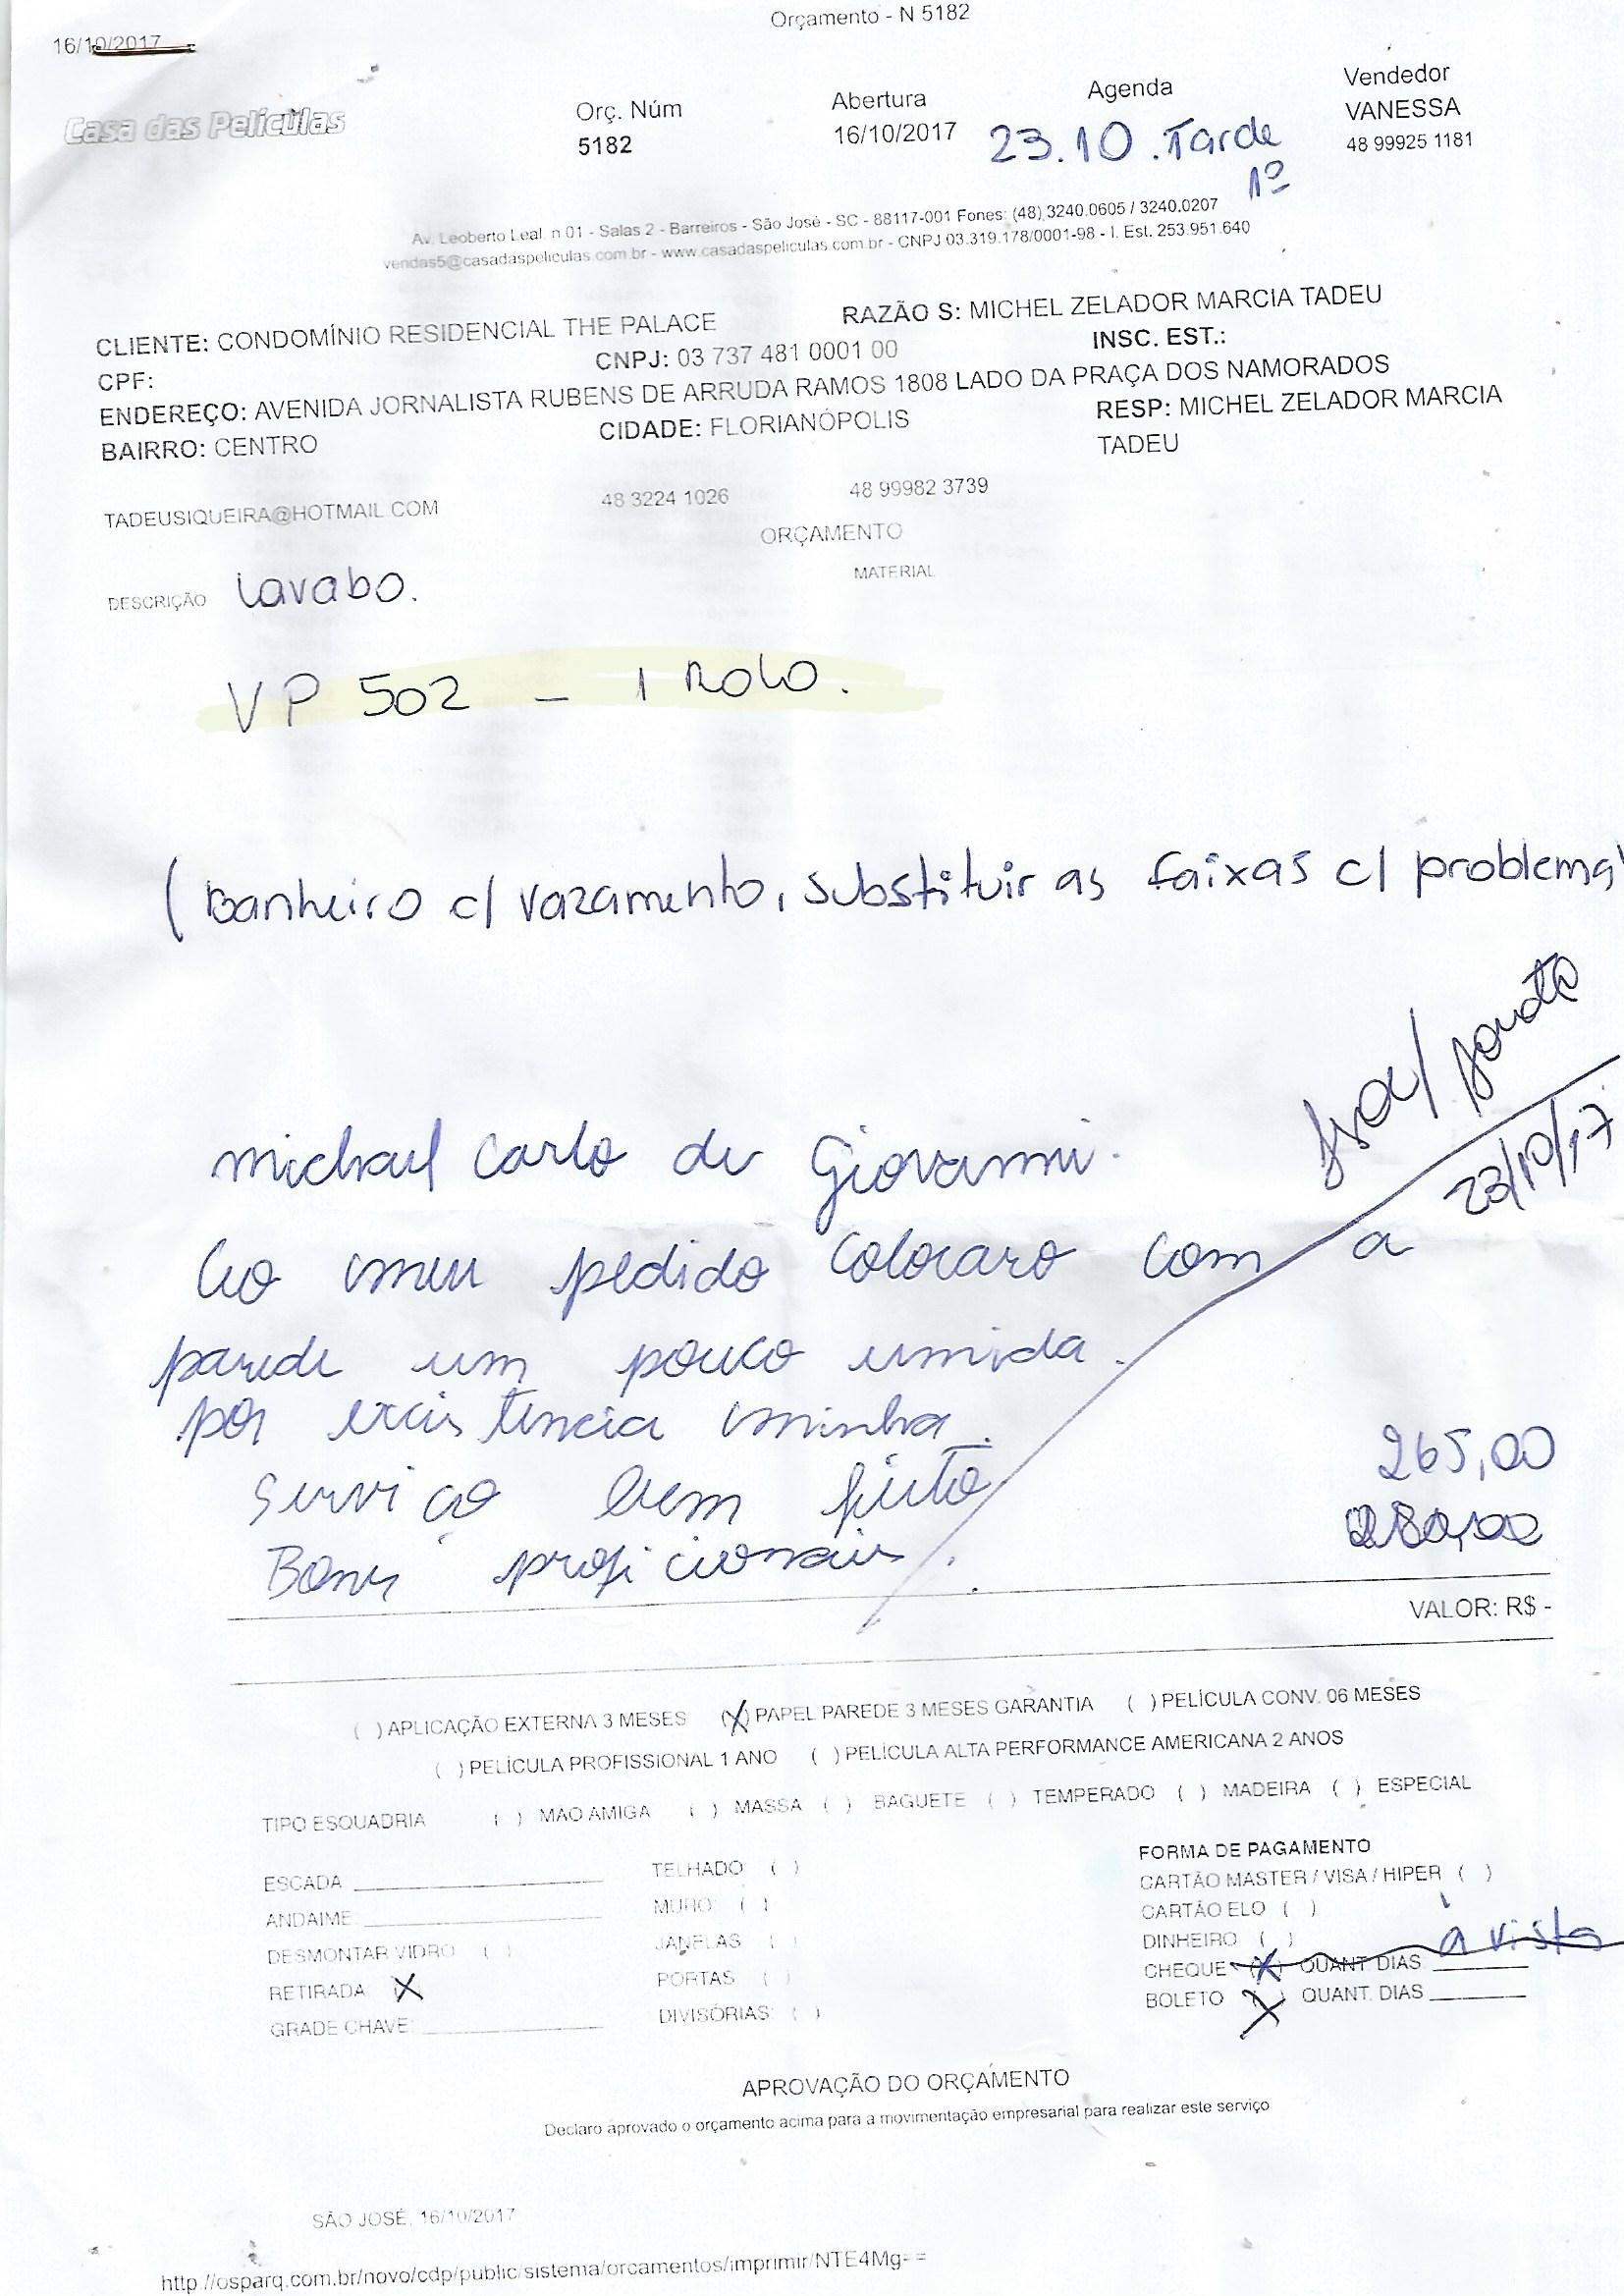 Orçamento - N 5182
16/10/2017
Casa das Películas
Orç. Núm
5182
Abertura
16/10/2017
Agenda
23.10.Tarde
1º
Vendedor
VANESSA
48 99925 1181
Av. Leoberto Leal n 01 - Salas 2 - Barreiros - São José - SC - 88117-001 Fones: (48) 3240.0605 / 3240.0207
vendas5@casadaspeliculas.com.br - www.casadaspeliculas.com.br - CNPJ 03.319.178/0001-98 - I. Est. 253.951.640
CLIENTE: CONDOMÍNIO RESIDENCIAL THE PALACE RAZÃO S: MICHEL ZELADOR MARCIA TADEU
CPF: CNPJ: 03 737 481 0001 00 INSC. EST.:
ENDEREÇO: AVENIDA JORNALISTA RUBENS DE ARRUDA RAMOS 1808 LADO DA PRAÇA DOS NAMORADOS
BAIRRO: CENTRO CIDADE: FLORIANÓPOLIS RESP: MICHEL ZELADOR MARCIA
TADEU
TADEUSIQUEIRA@HOTMAIL.COM 48 3224 1026 48 99982 3739
ORÇAMENTO
MATERIAL
DESCRIÇÃO Lavabo.
VP 502 - 1 Rolo.
(Banheiro c/ vazamento, substituir as faixas c/ problema)
23/10/17
michael Carlo de Giovanni.
Ao meu pedido colocaro com a
parede um pouco umida.
por excistencia minha.
Serviço bem feito
Bons proficionais.
265,00
280,00
VALOR: R$ -
( ) APLICAÇÃO EXTERNA 3 MESES (X) PAPEL PAREDE 3 MESES GARANTIA ( ) PELÍCULA CONV. 06 MESES
( ) PELÍCULA PROFISSIONAL 1 ANO ( ) PELÍCULA ALTA PERFORMANCE AMERICANA 2 ANOS
TIPO ESQUADRIA ( ) MAO AMIGA ( ) MASSA ( ) BAGUETE ( ) TEMPERADO ( ) MADEIRA ( ) ESPECIAL
ESCADA
ANDAIME
DESMONTAR VIDRO ( )
RETIRADA X
GRADE CHAVE:
TELHADO ( )
MURO: ( )
JANELAS ( )
PORTAS ( )
DIVISÓRIAS: ( )
FORMA DE PAGAMENTO
CARTÃO MASTER / VISA / HIPER ( )
CARTÃO ELO ( )
DINHEIRO ( ) a vista
CHEQUE (X) QUANT DIAS
BOLETO (X) QUANT. DIAS
APROVAÇÃO DO ORÇAMENTO
Declaro aprovado o orçamento acima para a movimentação empresarial para realizar este serviço
SÃO JOSÉ, 16/10/2017
http://osparq.com.br/novo/cdp/public/sistema/orcamentos/imprimir/NTE4Mg==